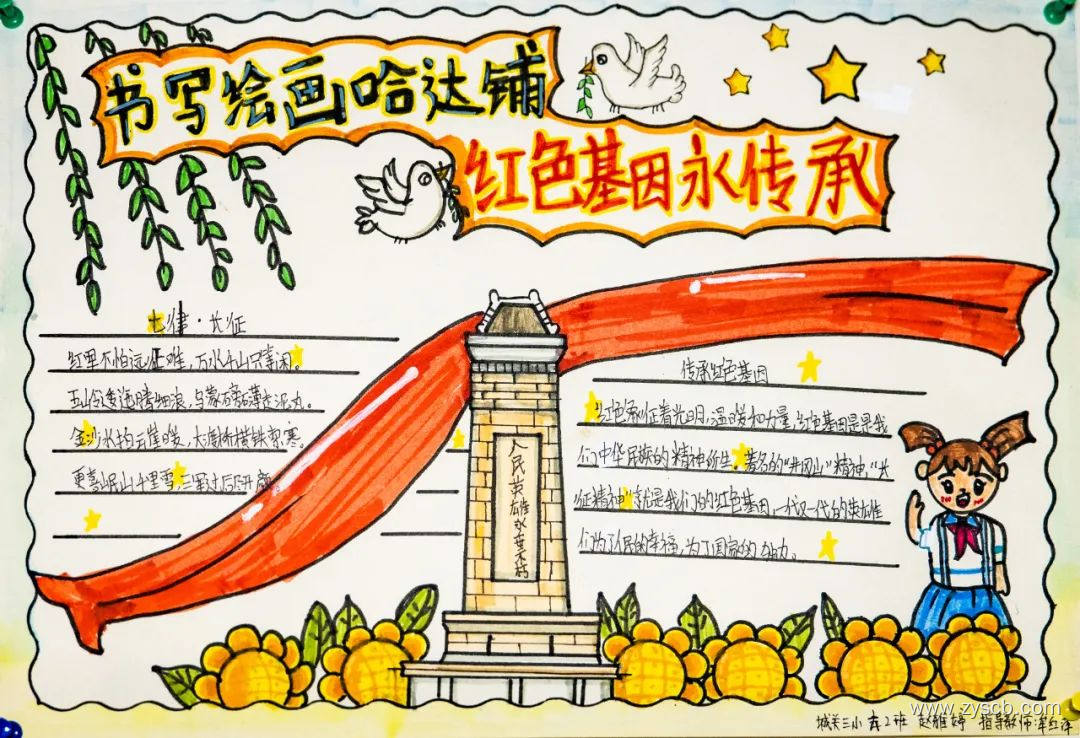 书写绘画哈达铺
红色基因永传承
七律·长征
红军不怕远征难,万水千山只等闲。
五岭逶迤腾细浪,乌蒙磅礴走泥丸。
金沙水拍云崖暖,大渡桥横铁索寒。
更喜岷山千里雪,三军过后尽开颜
人民英雄永垂不朽
传承红色基因
红色象征着光明,温暖和力量,红色基因是早我
们中华民族的精神所生 著名的"井冈山"精神,"长
征精神"就是我们的红色基因,一代又一代的英雄
们为了人民的幸福,为了国家的
城关三小 2班 赵雅婷 指导教师
www.zyscb.com